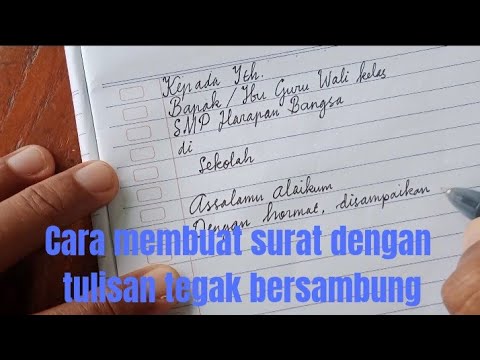 Kepada Yth.
Bapak / Ibu Guru Wali kelas
SMP Harapan Bangsa
di
Sekolah
Assalamu alaikum
Dengan hormat, disampaikan
Cara membuat surat dengan
tulisan tegak bersambung